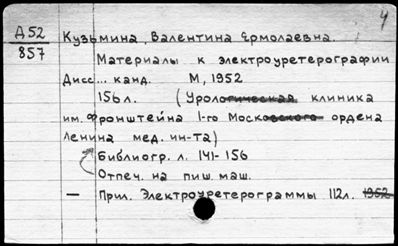 4
Д52
857
Кузьмина, Валентина Ермолаевна.
Материалы к электроуретерографии
Дисс... канд. М, 1952
156 л. (Урологическая клиника
им. Фронштейна 1-го Московского ордена
Ленина мед. ин-та)
Библиогр. л. 141-156
Отпеч. на пиш. маш.
— Прил. Электроуретерограммы 112л. 1952